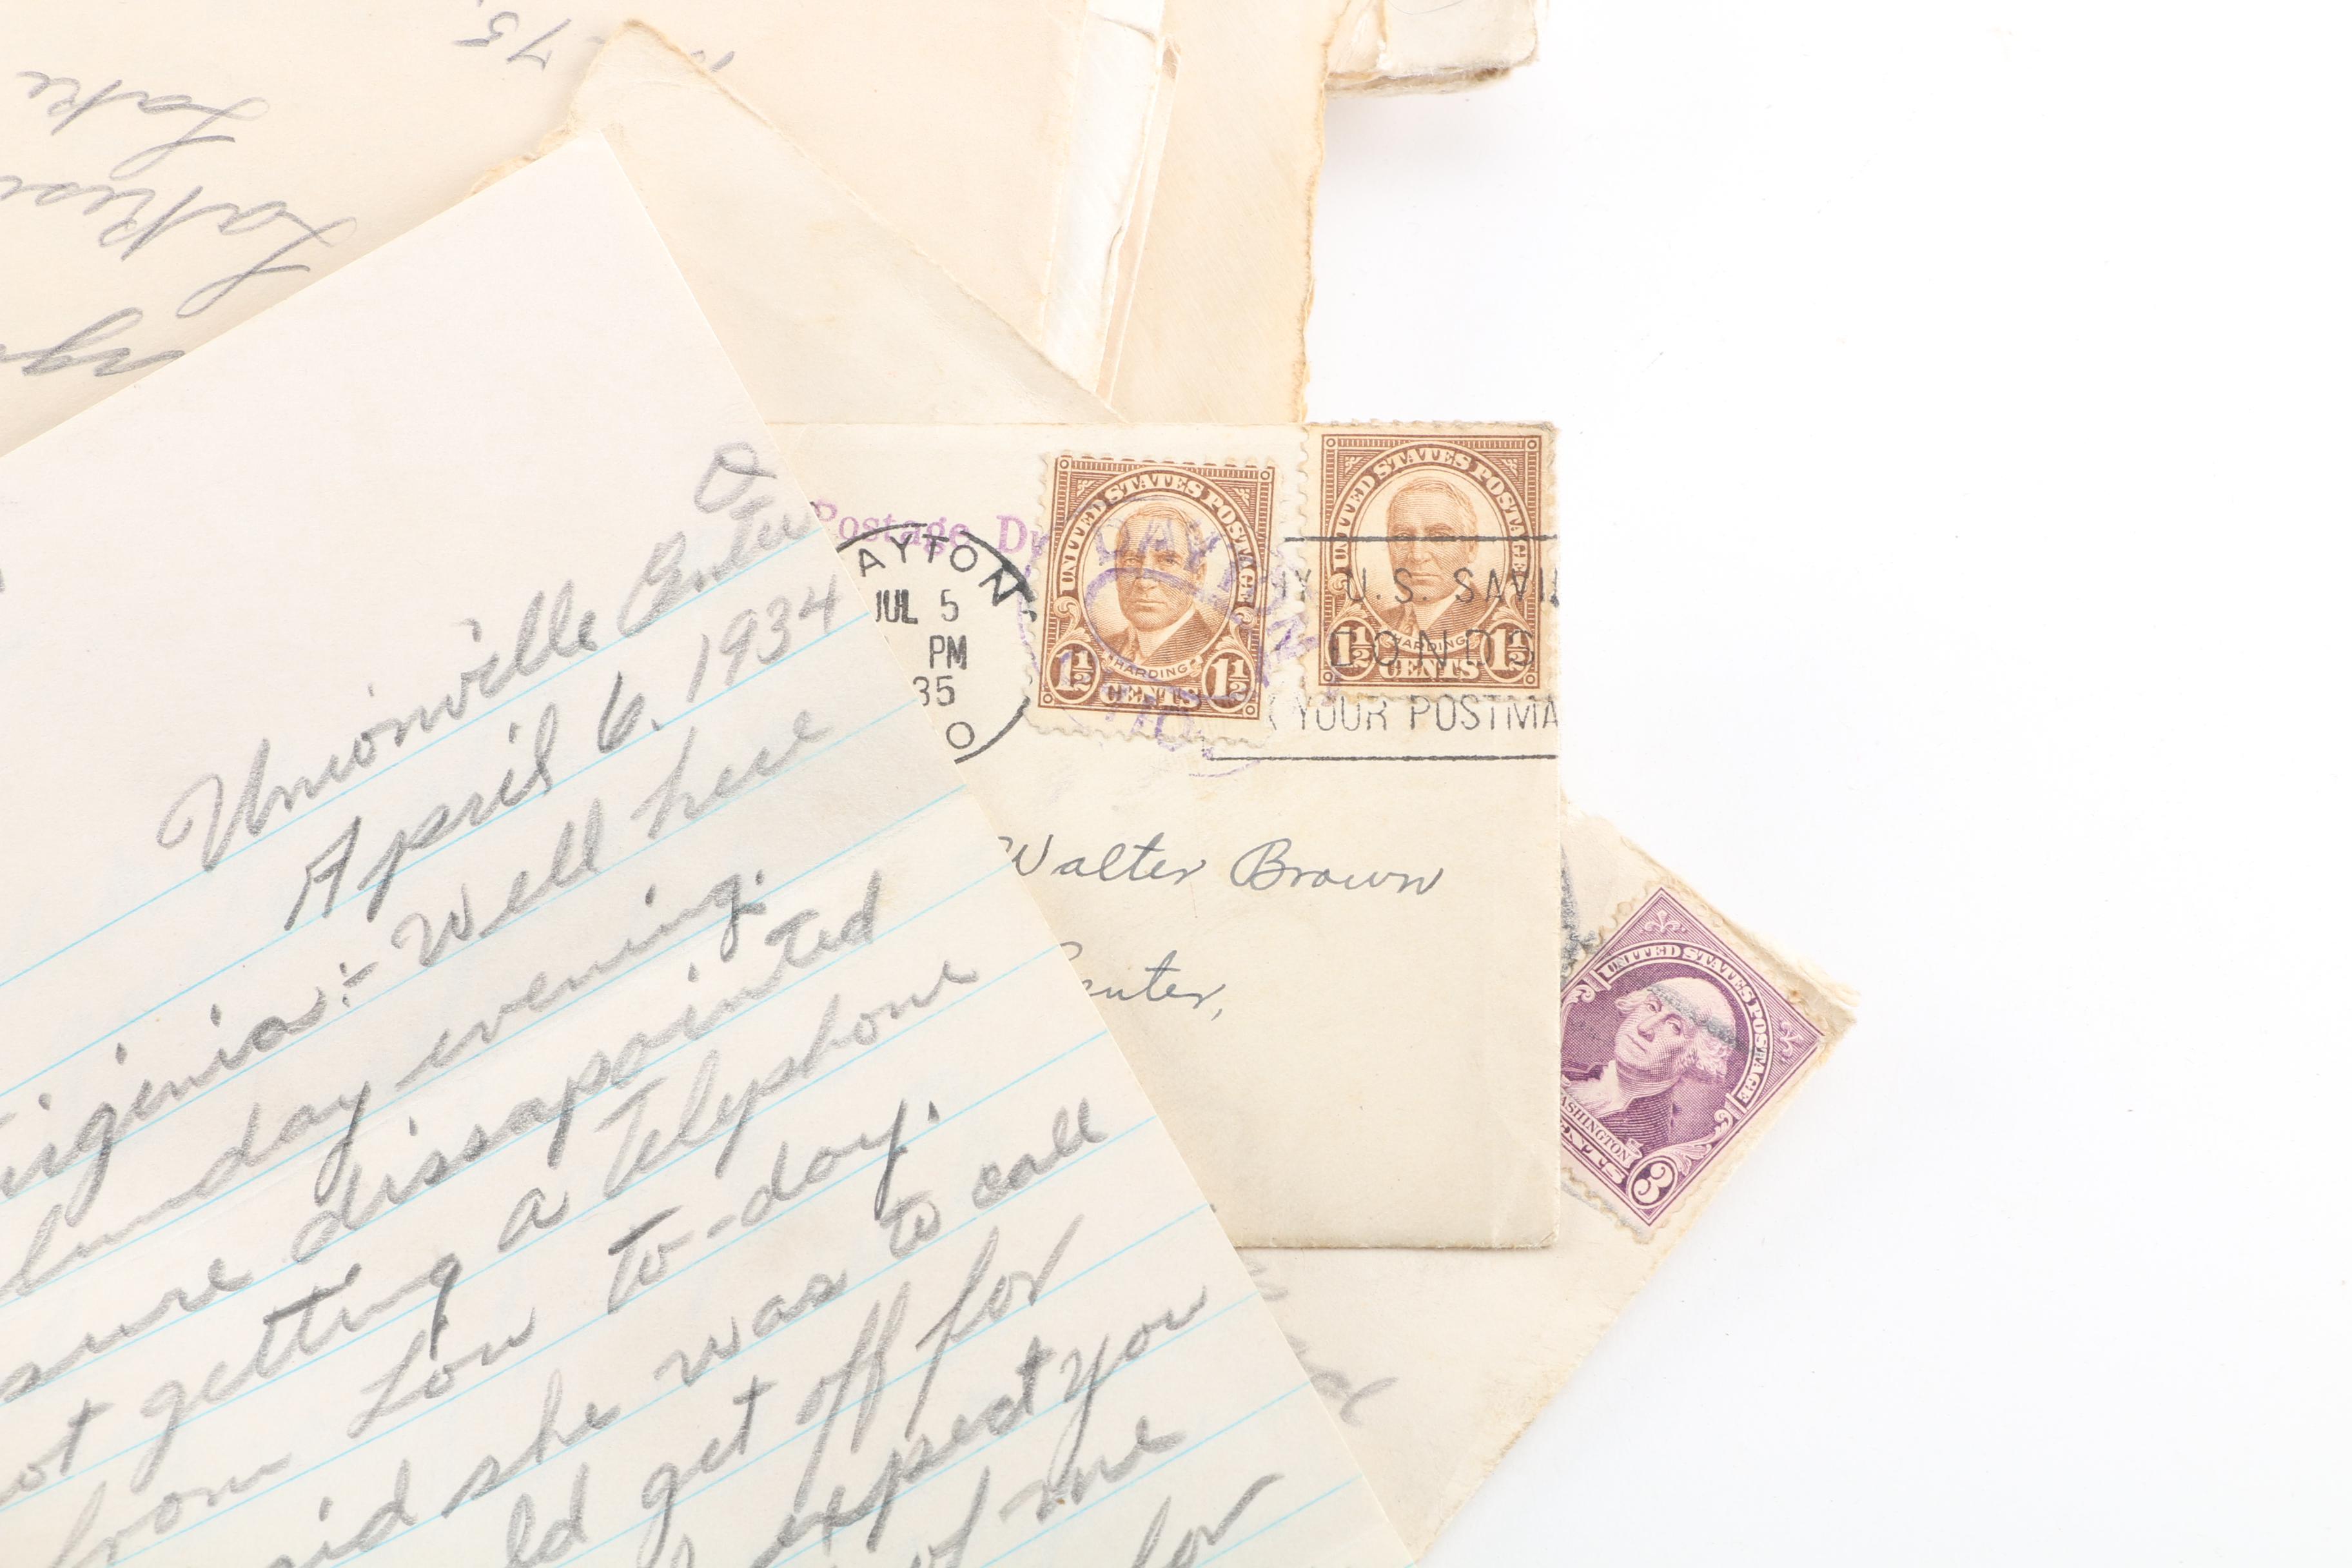 75.
Lake
O.
Unionville Center
April 6. 1934
Virginia:- Well here
Sunday evening.
sure dissapointed
not getting a telephone
from Lou to-day.
said she was to call
ld get off for
expect you
of me
for
Postage Du
DAYTON
OHIO
AYTON
JUL 5
PM
35
O
UNITED STATES POSTAGE
HARDING
1½ CENTS 1½
UNITED STATES POSTAGE
HARDING
1½ CENTS 1½
Y U.S. SAVI
BONDS
K YOUR POSTMA
Walter Brown
enter,
UNITED STATES POSTAGE
WASHINGTON
ENTS 3